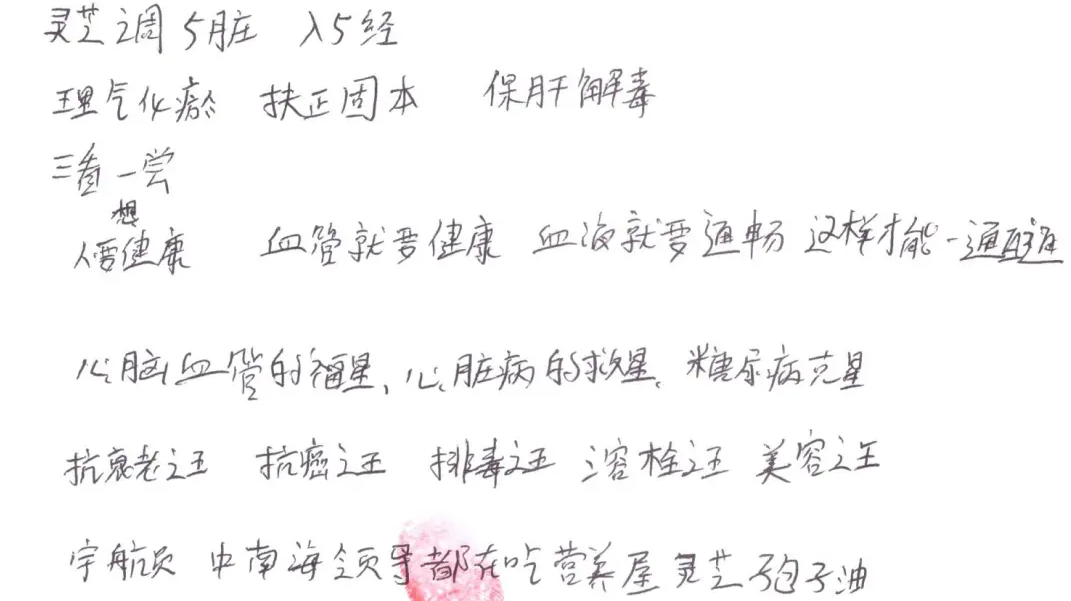 灵芝调5脏 入5经
理气化瘀 扶正固本 保肝解毒
三看一尝
人想要健康 血管就要健康 血液就要通畅 这样才能一通百通
心脑血管的福星、心脏病的救星、糖尿病克星
抗衰老之王 抗癌之王 排毒之王 溶栓之王 美容之王
宇航员 中南海领导都在吃营养屋灵芝孢子油